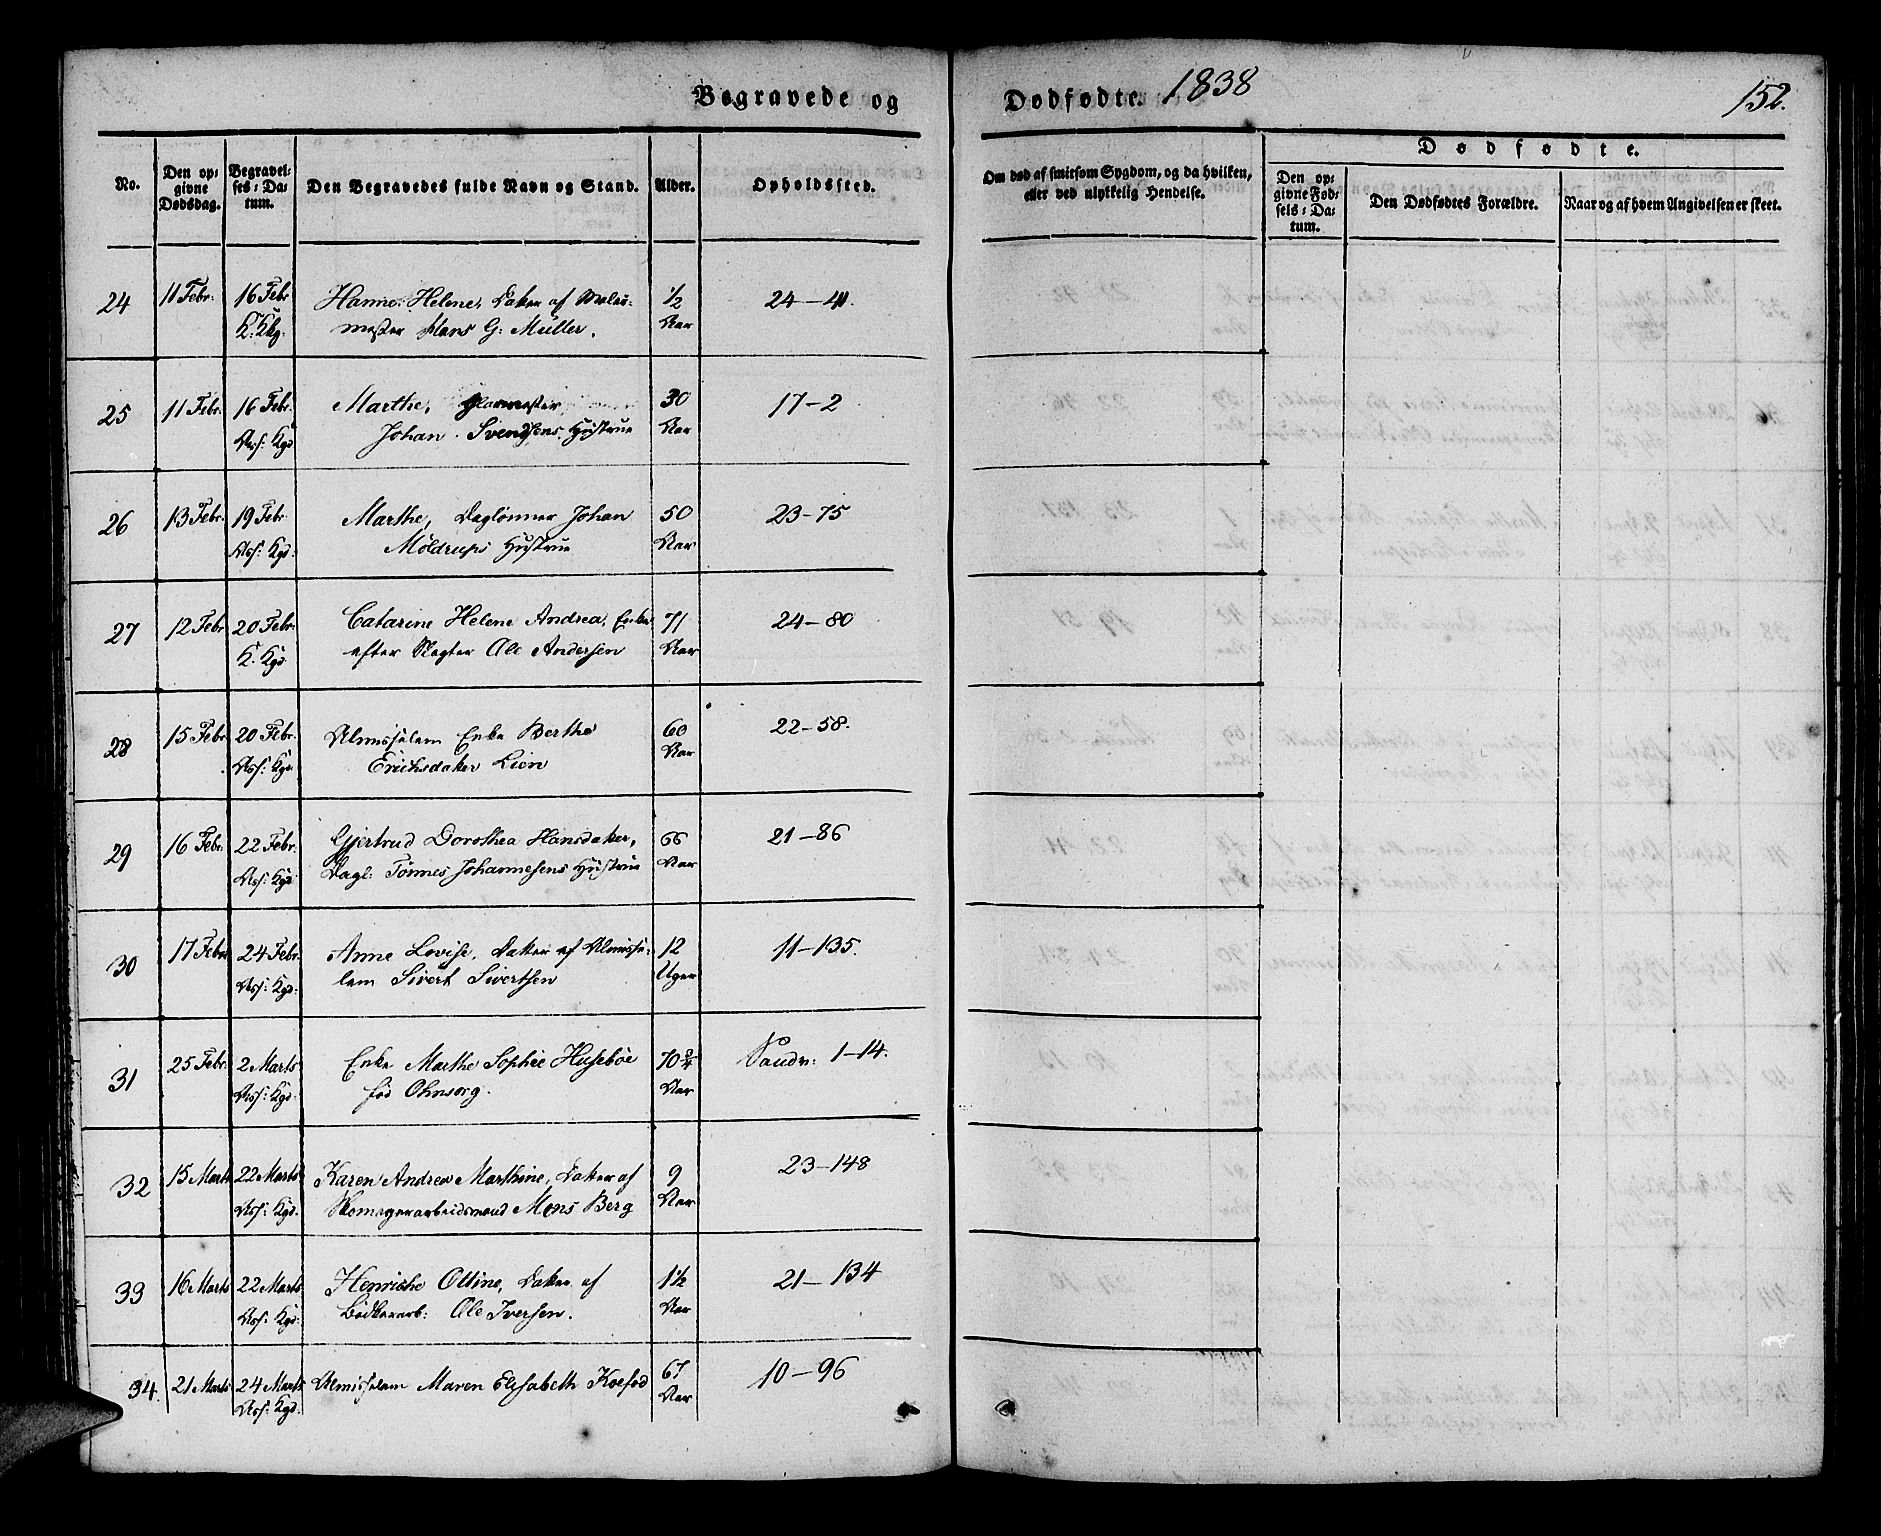 Begravede og Dødfødte. 1838
152.
No.
Den op-
givne
Dødsdag.
Begravel-
ses-Da-
tum.
Den Begravedes fulde Navn og Stand.
Alder.
Opholdssted.
Om død af smitsom Sygdom, og da hvilken,
eller ved ulykkelig Hendelse.
Dødfødte.
Den op-
givne Fød-
sels-Da-
tum.
Den Dødfødtes Forældre.
Naar og af hvem Angivelsen er skeet.
24 11 Febr: 16 Febr Hanne Helene, Datter af Maler- 1/2 24-41.
K. Kkg. mester Hans G: Müller. Aar
25 11 Febr. 16 Febr. Marthe, Glarmester 30 17-2
Ass: Kgd Johan Svendsens Hustrue Aar
26 13 Febr. 19 Febr. Marthe, Daglønner Johan 50 23-75
Ass: Kgd: Møldrups Hustrue Aar
27 12 Febr 20 Febr. Catarine Helene Andrea, Enke 71 24-80
K. Kgd efter Slagter Ole Andersen Aar
28 15 Febr 20 Febr. Almisselem Enke Berthe 60 22-58.
Ass: Kgd Erichsdatter Lion Aar
29 16 Febr. 22 Febr. Gjertrud Dorothea Hansdatter, 66 21-86
Ass: Kgd Dagl: Tønnes Johannesens Hustrue Aar
30 17 Febr 24 Febr. Anne Lovise, Datter af Almisse- 12 11-135.
Ass: Kgd: lem Sivert Sivertsen Uger
31 25 Febr. 2 Marts Enke Marthe Sophie Husebøe 70 3/4 Sandv: 1-14.
Ass: Kgd. fød Ohnsorg. Aar
32 15 Marts 22 Marts Karen Andrea Marthine, Datter af 9 23-148
Ass: Kgd. Skomagerarbeidsmand Mons Berg Aar
33 16 Marts 22 Marts Henriche Olline, Datter af 1 1/2 21-134
Ass: Kgd: Bødkerarb: Ole Iversen. Aar
34. 21 Marts 24 Marts Almisselem Maren Elisabeth Koefod 67 10-96
Ass: Kgd. Aar